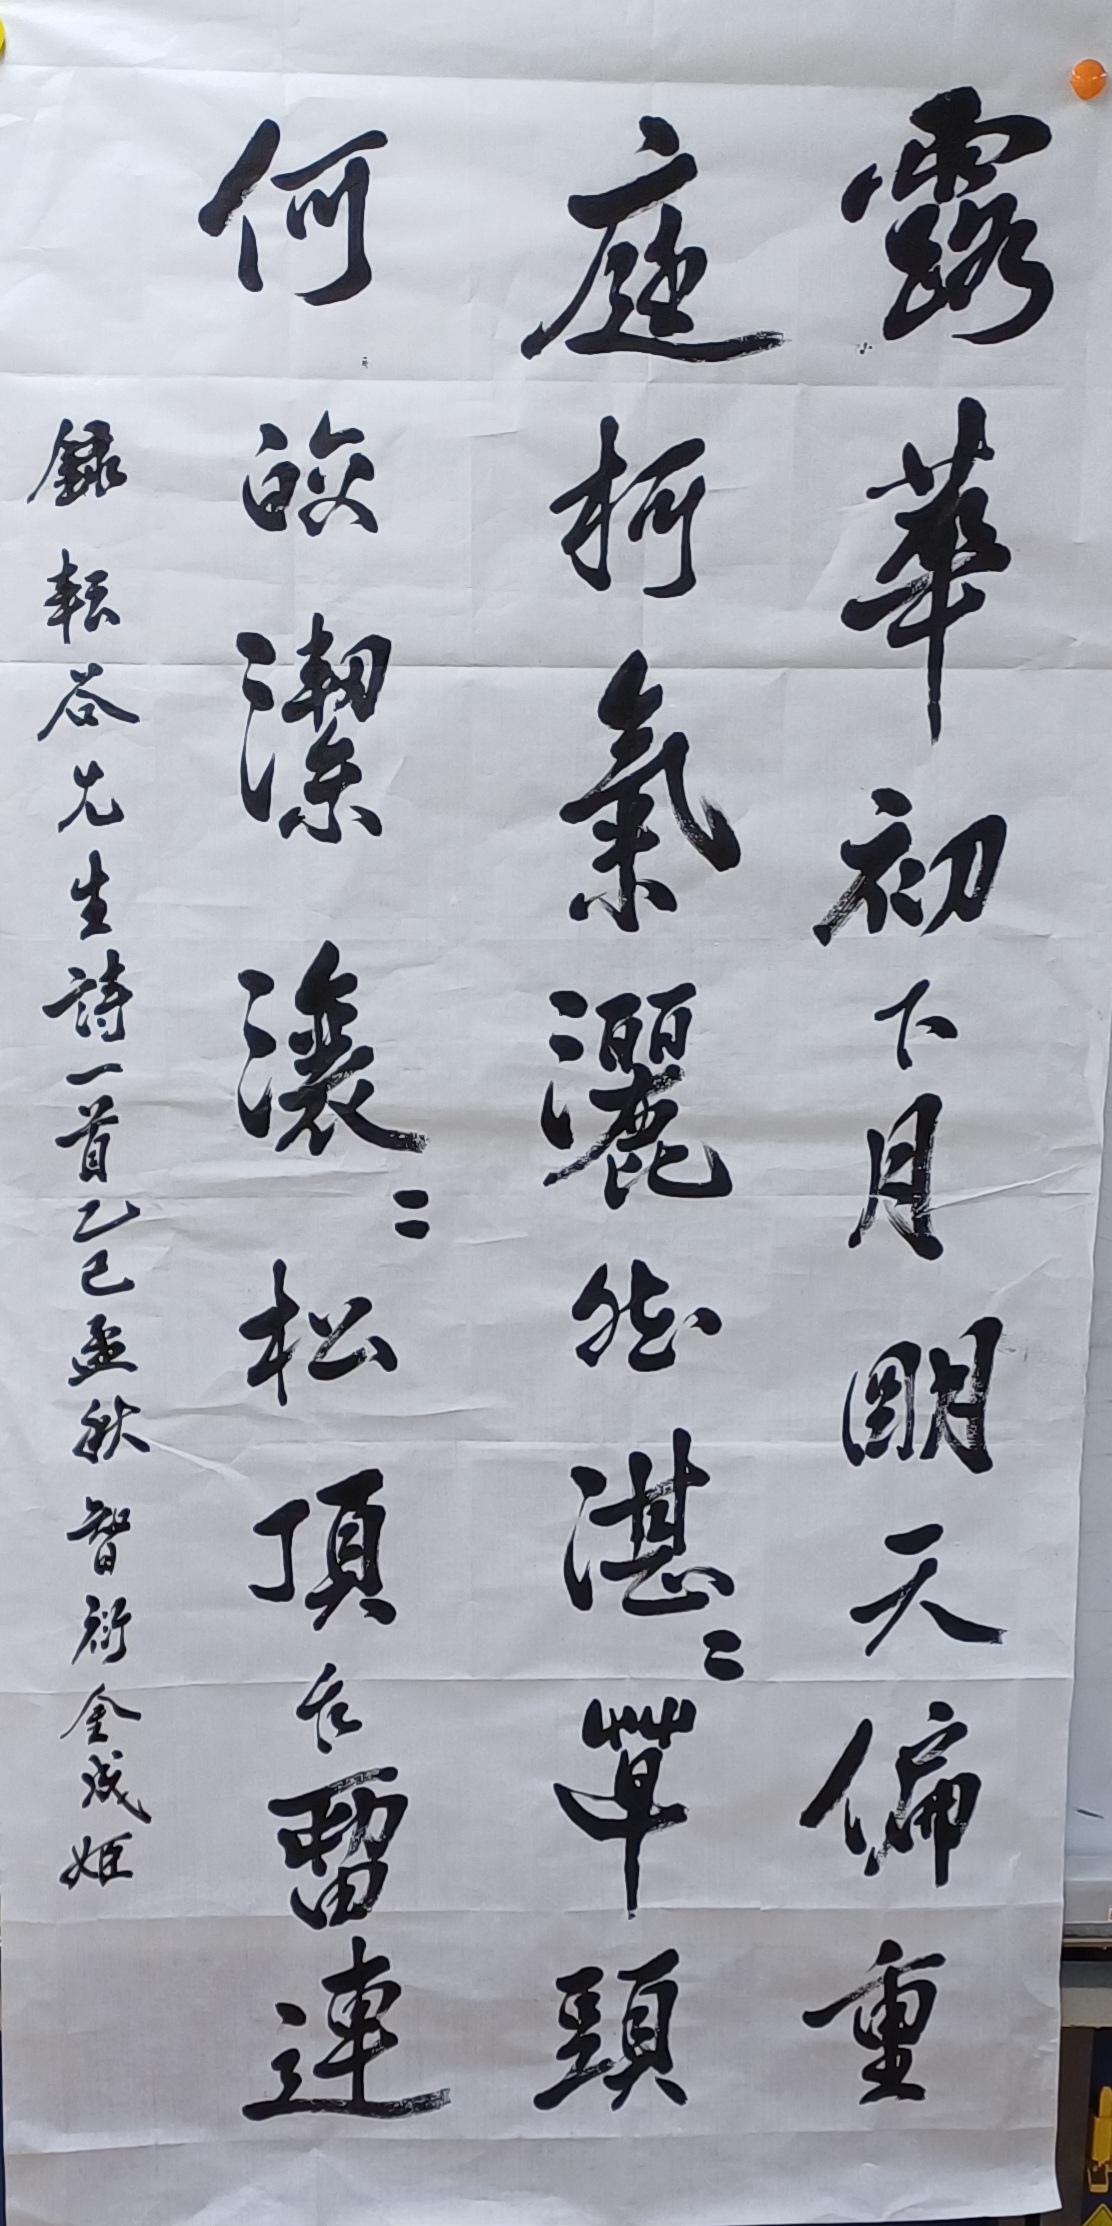 露華初下月明天偏重
庭柯氣灑然湛〻草頭
何皎潔瀼〻松頂乍留連
錄耘谷先生詩一首乙巳孟秋智衍金成姬